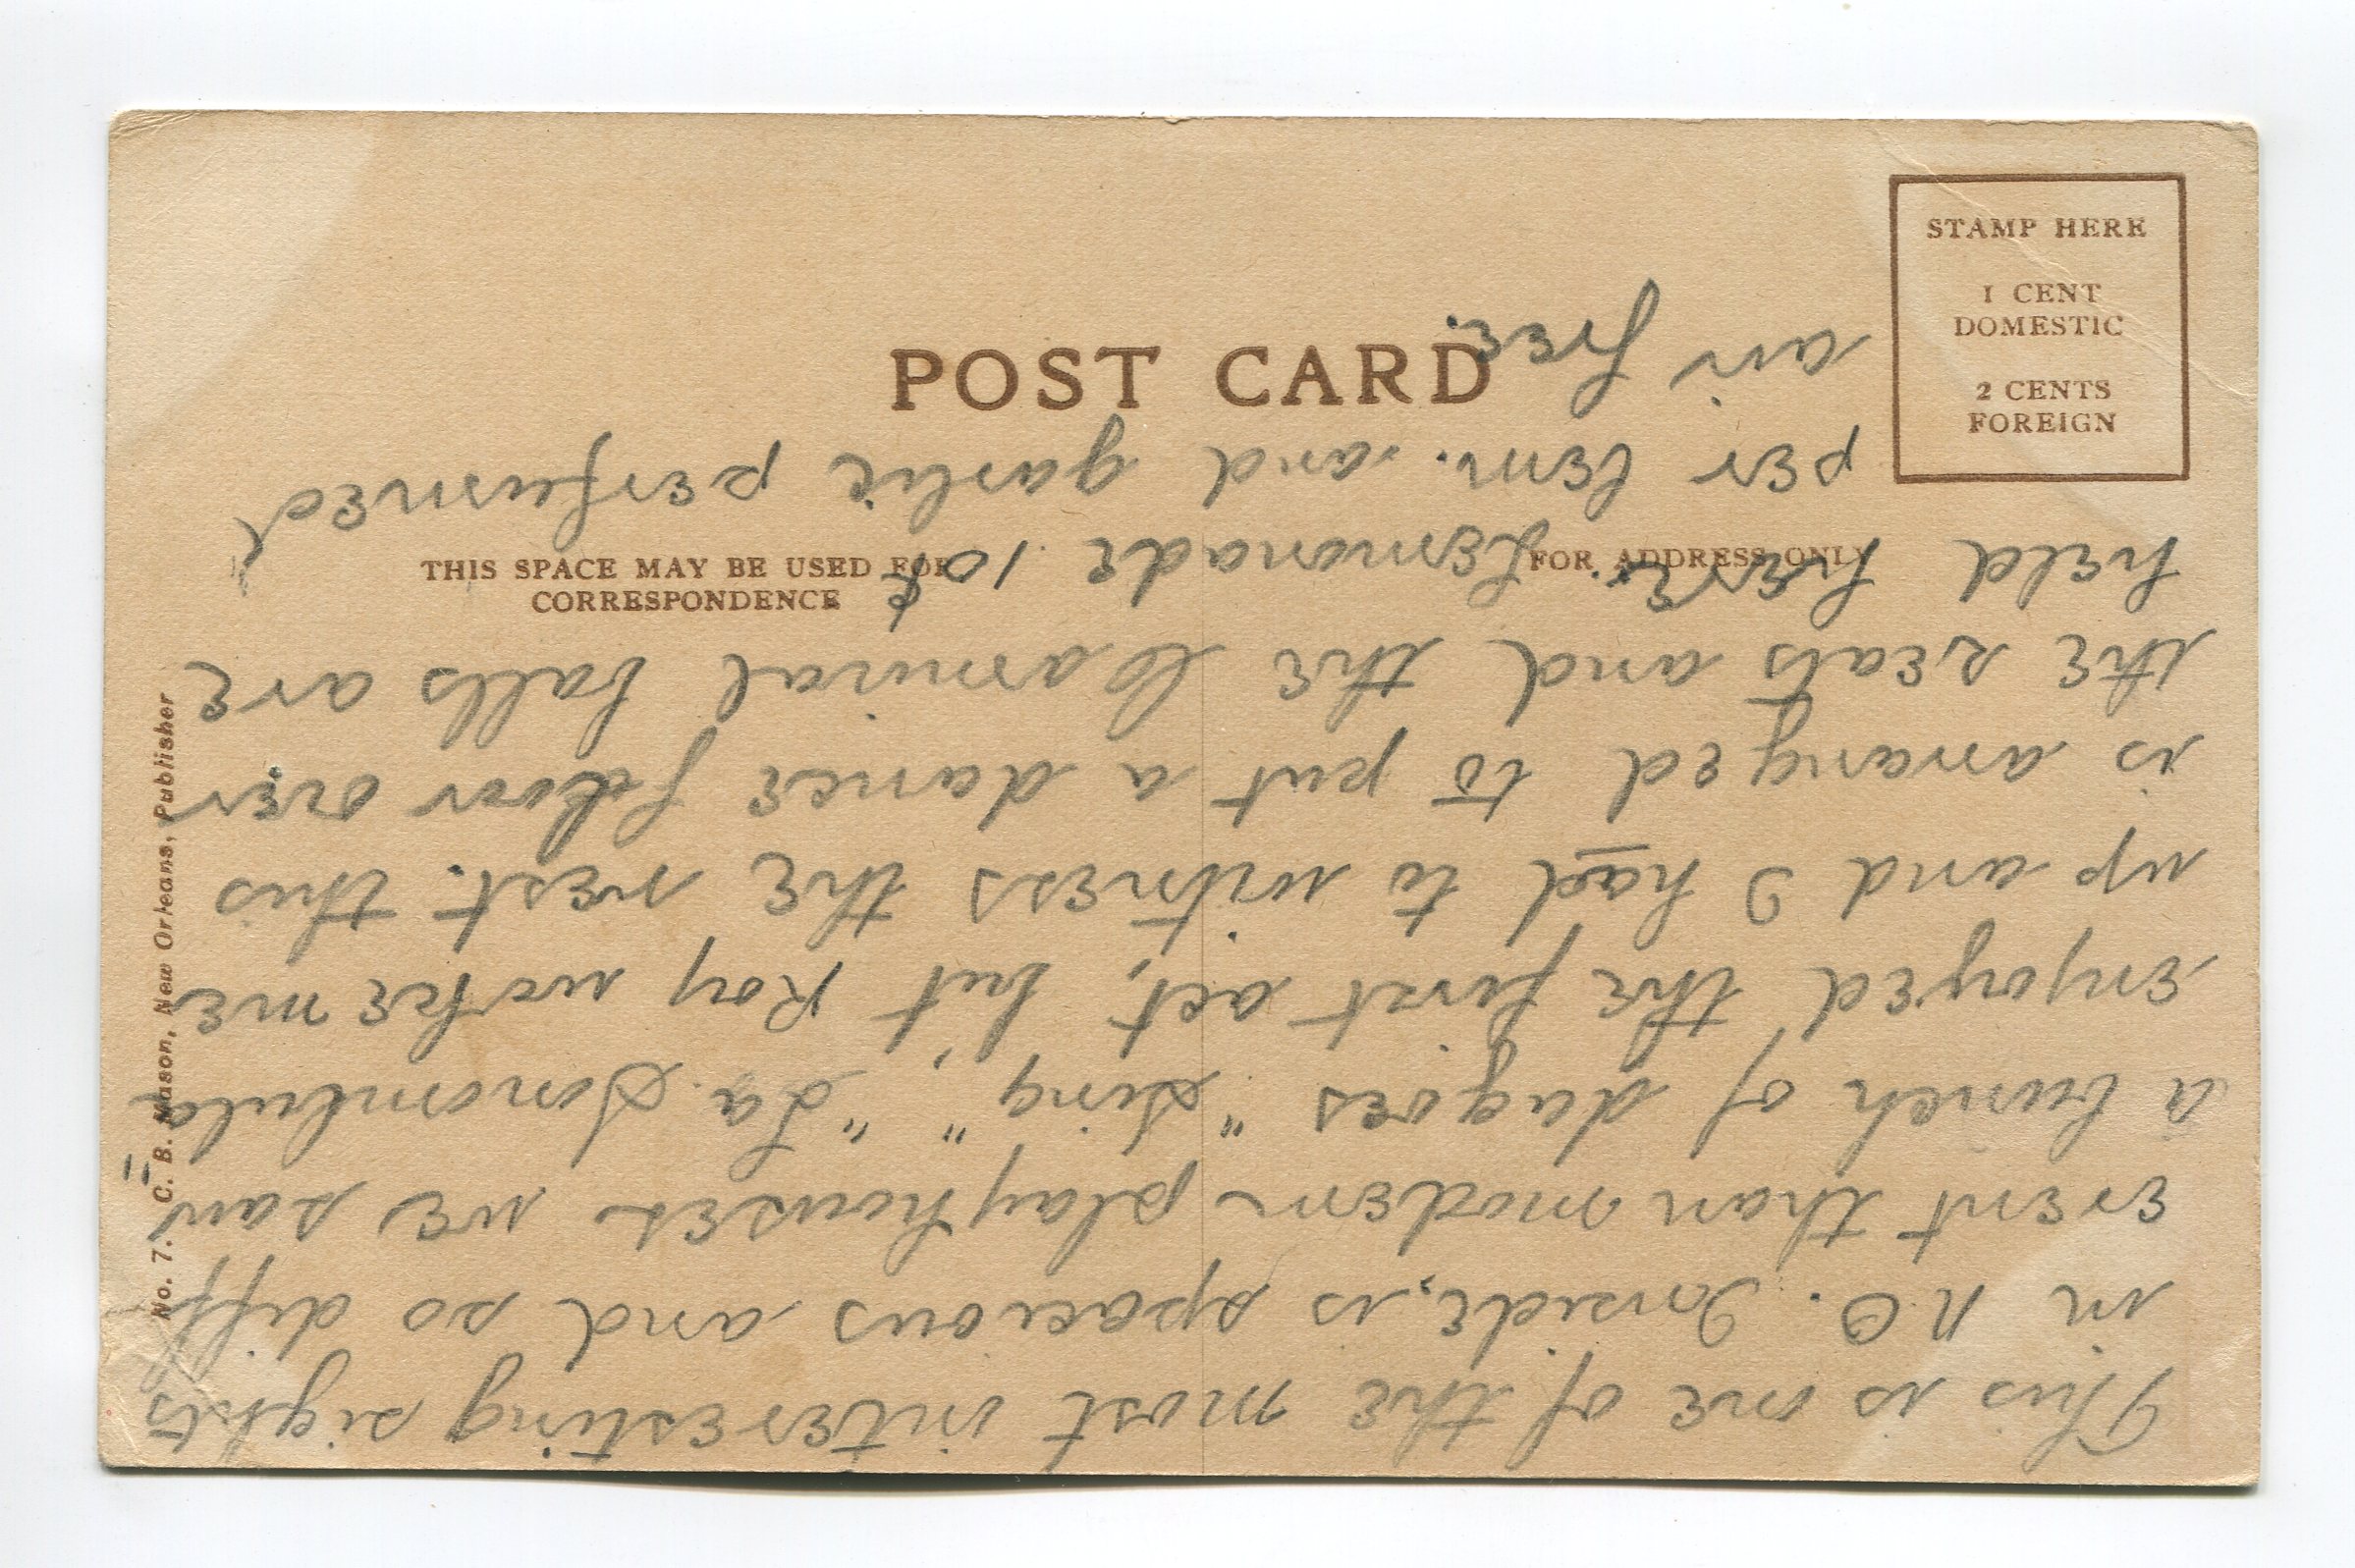 POST CARD
STAMP HERE
1 CENT
DOMESTIC
2 CENTS
FOREIGN
THIS SPACE MAY BE USED FOR
CORRESPONDENCE
FOR ADDRESS ONLY
No. 7. C. B. Mason, New Orleans, Publisher
This is one of the most interesting sights
in N.O. Inside, is spacious and so diff
erent than modern playhouses we saw
a bunch of dagoes "sing" "La Sonombula"
enjoyed the first act, but Roy woke me
up and I had to witness the rest. this
is arranged to put a dance floor over
the seats and the Carnival balls are
held here. Lemonade 10¢
per lem. and garlic perfumed
air free.